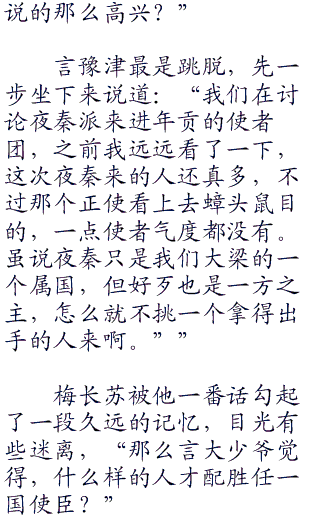 说的那么高兴？”
言豫津最是跳脱，先一
步坐下来说道：“我们在讨
论夜秦派来进年贡的使者
团，之前我远远看了一下，
这次夜秦来的人还真多，不
过那个正使看上去蟑头鼠目
的，一点使者气度都没有。
虽说夜秦只是我们大梁的一
个属国，但好歹也是一方之
主，怎么就不挑一个拿得出
手的人来啊。””
梅长苏被他一番话勾起
了一段久远的记忆，目光有
些迷离，“那么言大少爷觉
得，什么样的人才配胜任一
国使臣？”